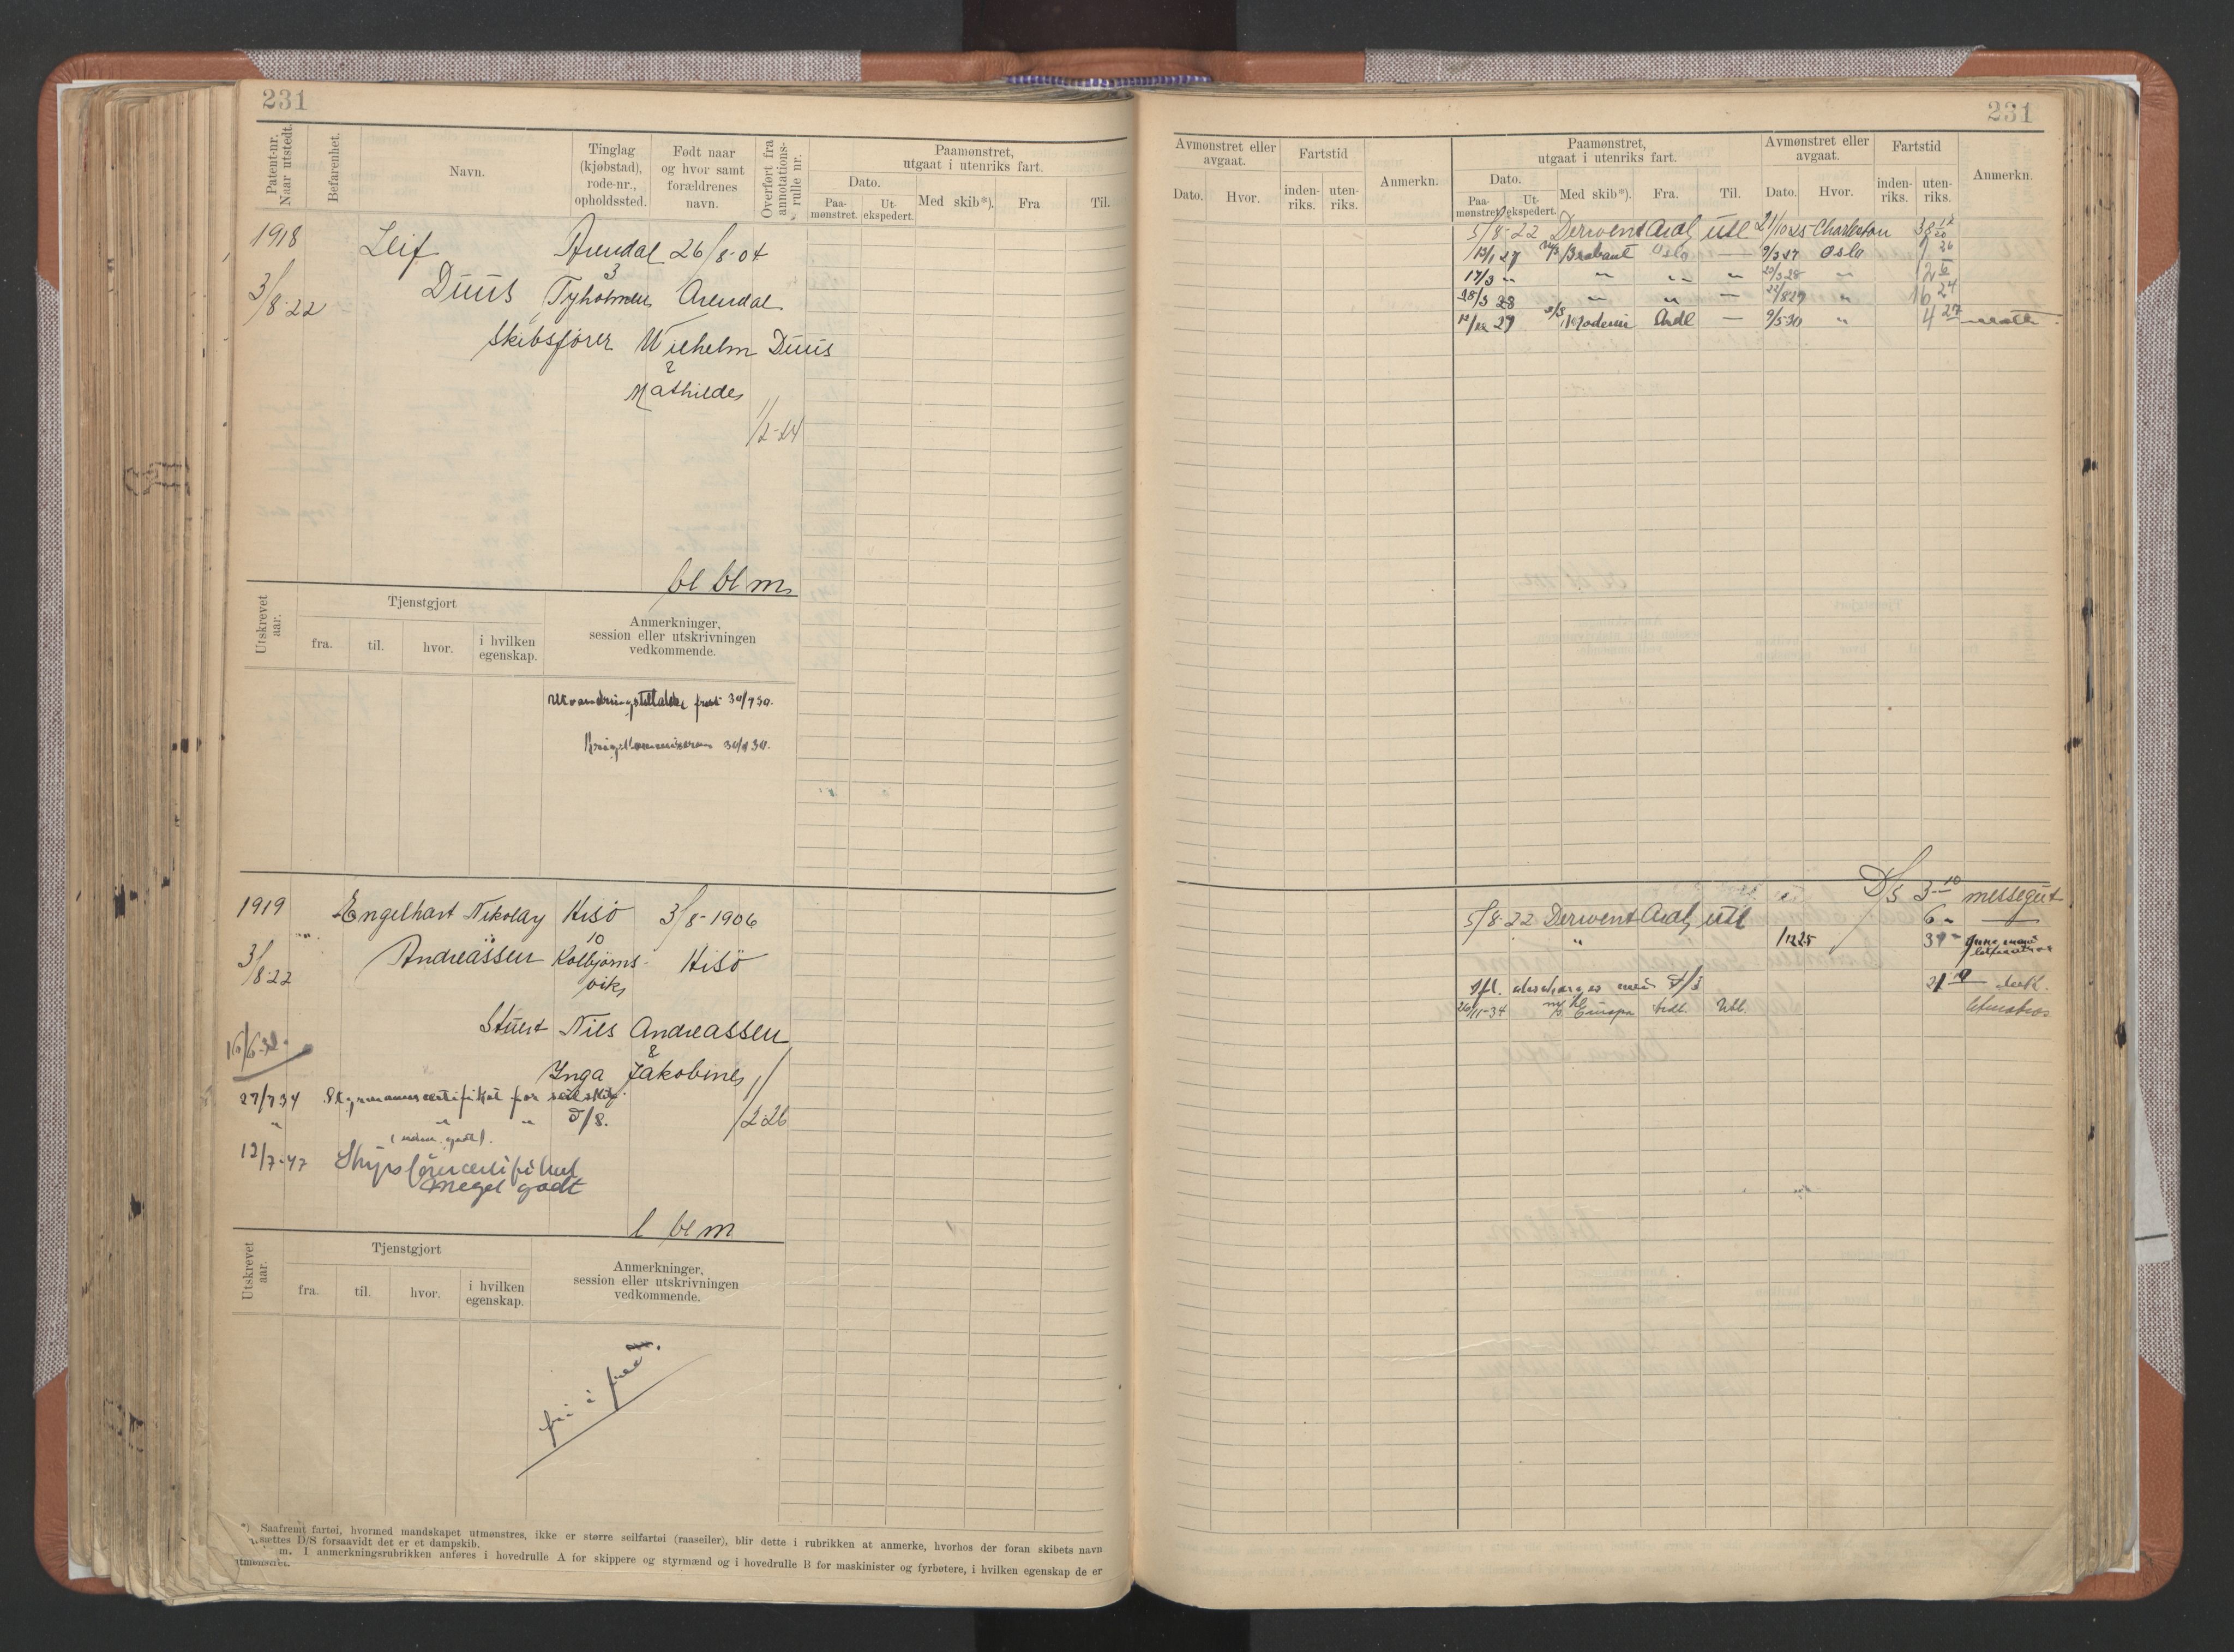 231
Patent-nr. Naar utstedt.
Befarenhet.
Navn.
Tinglag (kjøbstad), rode-nr., opholdssted.
Født naar og hvor samt forældrenes navn.
Overført fra annotations-rulle nr.
Paamønstret, utgaat i utenriks fart.
Dato.
Paa-mønstret.
Ut-ekspedert.
Med skib*).
Fra
Til.
1918
Leif Arendal 26/8-04
3
3/8-22 Duus Tyholmen Arendal
Skibsfører Wilhelm Duus
&
Mathilde
1/2-24
bl bl m
Utskrevet aar.
Tjenstgjort
fra.
til.
hvor.
i hvilken egenskap.
Anmerkninger, session eller utskrivningen vedkommende.
30/4 30.
1919 Engelhart Nikolay Hisö 3/8-1906
10
3/8-22 Andreässen Kolbjørns- Hisö
vik
Stuert Nils Andreassen
&
Inga Jakobine
1/2-26
27/7 34 Styrmannscertifikat for seilskip.
" " " D/S.
12/7-47 Skipsförercertifikat
Meget godt
l bl m
Utskrevet aar.
Tjenstgjort
fra.
til.
hvor.
i hvilken egenskap.
Anmerkninger, session eller utskrivningen vedkommende.
fri i fred.
*) Saafremt fartøi, hvormed mandskapet utmønstres, ikke er større seilfartøi (raaseiler), blir dette i rubrikken at anmerke, hvorhos der foran skibets navn
sættes D/S forsaavidt det er et dampskib.
m. I anmerkningsrubrikken anføres i hovedrulle A for skippere og styrmænd og i hovedrulle B for maskinister og fyrbøtere, i hvilken egenskap de er
utmønstret.
231
Avmønstret eller avgaat.
Dato.
Hvor.
Fartstid
inden-riks.
uten-riks.
Anmerkn.
Paamønstret, utgaat i utenriks fart.
Dato.
Paa-mønstret.
Ut-ekspedert.
Med skib*).
Fra.
Til.
Avmønstret eller avgaat.
Dato.
Hvor.
Fartstid
inden-riks.
uten-riks.
Anmerkn.
5/8-22 Derwent Ardl Utl 21/10 25 Charleston 38
13/1 27 M/S Brabant Oslo — 9/3 27 Oslo 1 26
17/3 " " " " 23/3 28 " 12
28/3 28 " " — 22/8 29 " 16 24
29 S/S Ardl — 9/5 30 " 4 27
D/S 3 10 messegut
5/8-22 Derwent Ardl Utl 6 " —
" 1/12 25
26/11-34 M/S Europa Ardl. Utl.